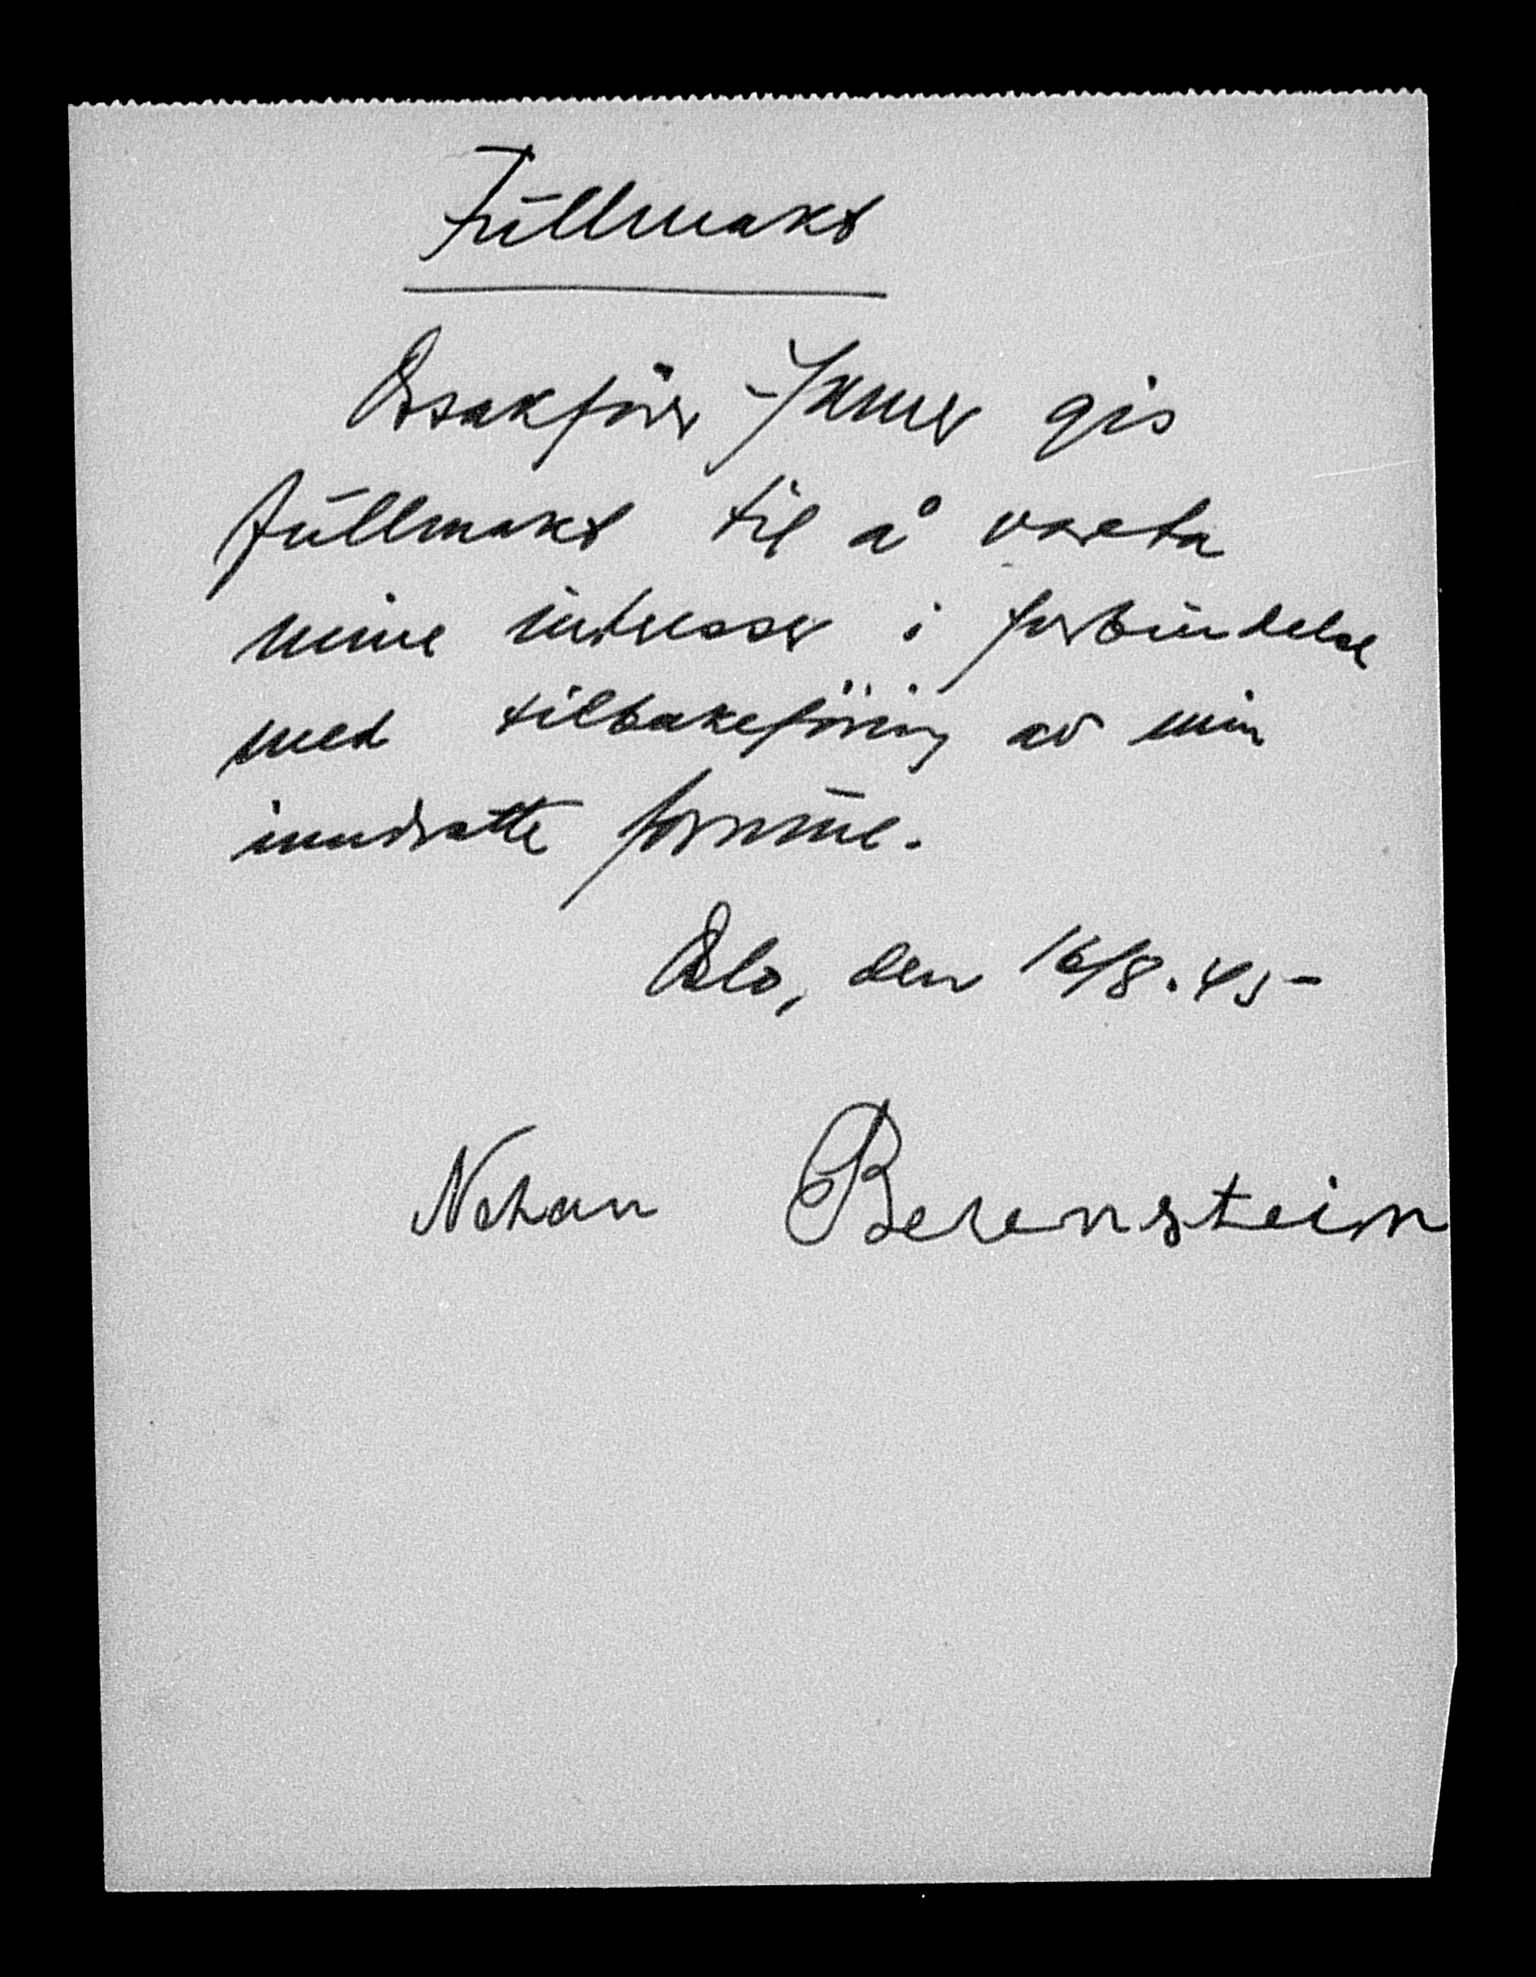 Fullmakt
Osakfører gis
fullmakt til å vareta
mine interesser i forbindelse
med tilbakeføring av min
inndratte formue.
Oslo, den 16/8.45-
Nehan Berenstein